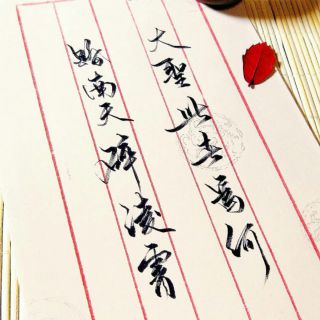 大聖此去爲何
踏南天碎凌霄